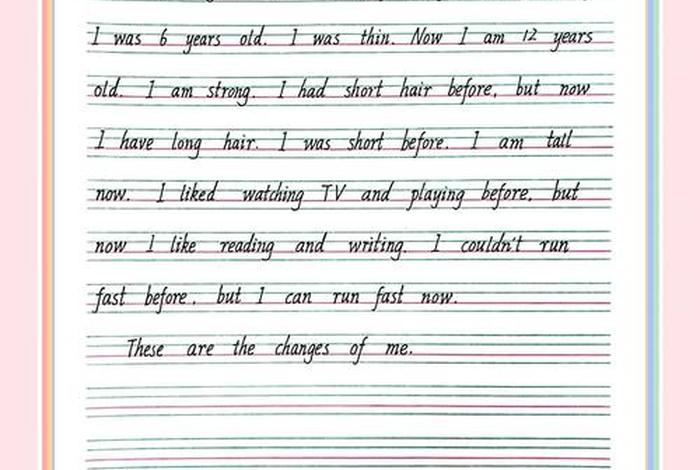 I was 6 years old. I was thin. Now I am 12 years
old. I am strong. I had short hair before, but now
I have long hair. I was short before. I am tall
now. I liked watching TV and playing before, but
now I like reading and writing. I couldn't run
fast before, but I can run fast now.
These are the changes of me.